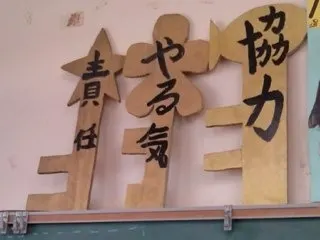 責任
やる気
協力